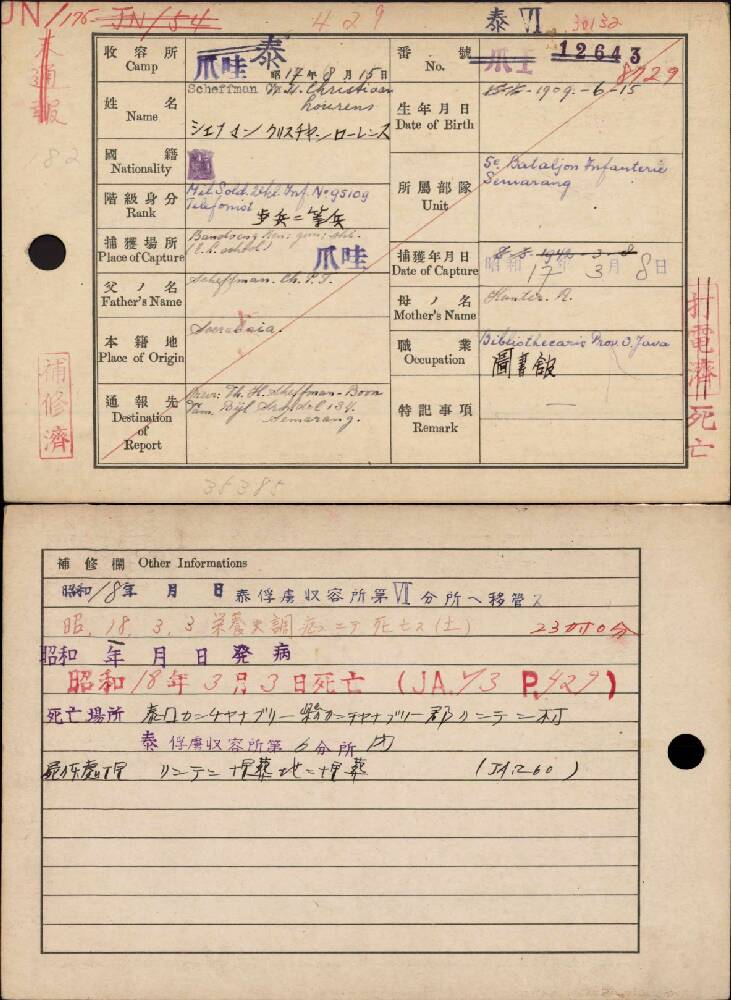 JN/176 JN/54 429 泰 VI 30132
未通報
182
収容所 Camp 爪哇 泰 昭17年8月15日
番號 No. 爪哇 12643
8729
姓名 Name Scheffman Christiaan Lourens
シェフマン クリスチャン ローレンス
生年月日 Date of Birth 1909-6-15
國籍 Nationality 蘭
階級身分 Rank Mil. Sold. 2e kl. Inf. No 95109
Telefonist 歩兵二等兵
所屬部隊 Unit 5e Bataljon Infanterie
Semarang
捕獲場所 Place of Capture Bandoeng
爪哇
捕獲年月日 Date of Capture 1942-3-8
昭和17年3月8日
父ノ名 Father's Name Scheffman. Ch. P. J.
母ノ名 Mother's Name Hunter. R.
本籍地 Place of Origin Soerabaia.
職業 Occupation Bibliothecaris Prov. O. Java
圖書館
通報先 Destination of Report Mevr: Th. H. Scheffman-Boon
134.
Semarang.
特記事項 Remark
補修濟
打電濟
死亡
36385
補修欄 Other Informations
昭和18年 月 日 泰俘虜収容所第VI分所ヘ移管ス
昭.18.3.3 栄養失調症ニテ死亡ス(土) 23時0分
昭和 年 月 日 発病
昭和18年3月3日死亡 (JA.73 P.429)
死亡場所 泰国カンチャナブリー県カンチャナブリー郡リンテン村
泰俘虜収容所第6分所内
屍体處理 リンテン埋葬地ニ埋葬 (JA260)